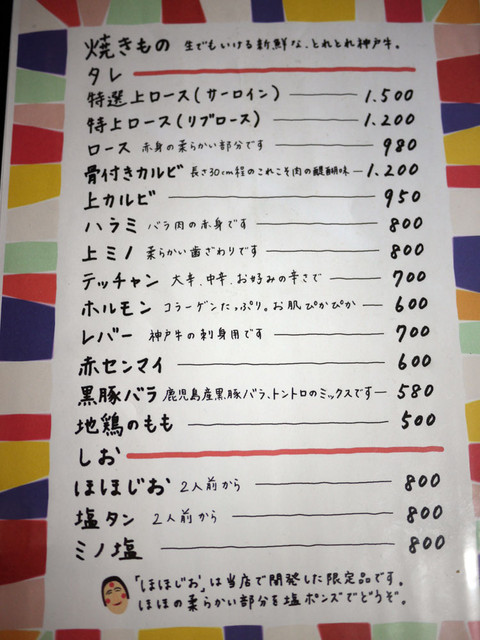 焼きもの 生でもいける新鮮な、とれとれ神戸牛。
タレ
特選上ロース(サーロイン) 1.500
特上ロース(リブロース) 1.200
ロース 赤身の柔らかい部分です 980
骨付きカルビ 長さ30cm程のこれこそ肉の醍醐味 1.200
上カルビ 950
ハラミ バラ肉の赤身です 800
上ミノ 柔らかい歯ざわりです 800
テッチャン 大辛、中辛、お好みの辛さで 700
ホルモン コラーゲンたっぷり。お肌ぴかぴか 600
レバー 神戸牛の刺身用です 700
赤センマイ 600
黒豚バラ 鹿児島産黒豚バラ、トントロのミックスです 580
地鶏のもも 500
しお
ほほじお 2人前から 800
塩タン 2人前から 800
ミノ塩 800
「ほほじお」は当店で開発した限定品です。
ほほの柔らかい部分を塩ポンズでどうぞ。